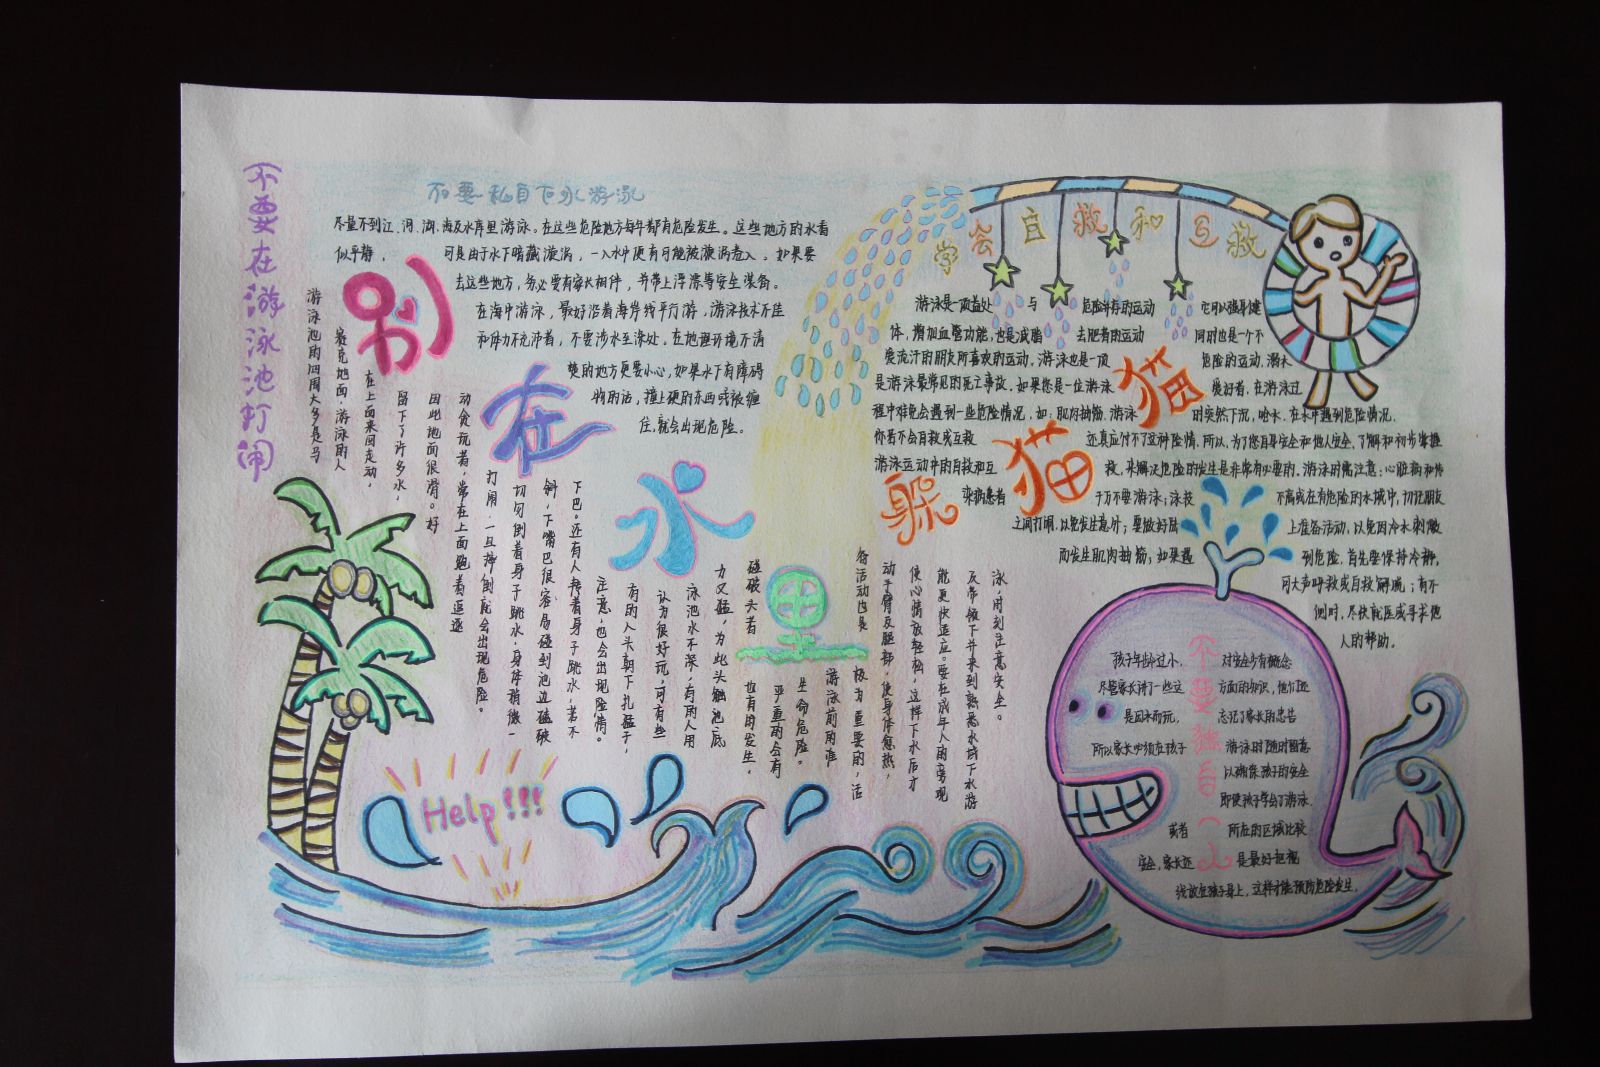 不要在游泳池打闹
不要私自下水游泳
尽量不到江、河、湖、海及水库里游泳。在这些危险地方每年都有危险发生。这些地方的水看
似平静，可是由于水下暗藏漩涡，一入水中便有可能被漩涡卷入。如果要
去这些地方，务必要有家长相伴，并带上浮漂等安全装备。
在海中游泳，最好沿着海岸线平行游，游泳技术不佳
和体力不充沛者，不要涉水至深处。在地理环境不清
楚的地方更要小心，如果水下有障碍
物的话，撞上硬的东西或被缠
住，就会出现危险。
别在水里躲猫猫
游泳池的四周大多是马
赛克地面，游泳的人
在上面来回走动，
留下了许多水，
因此地面很滑。好
动贪玩者，常在上面跑着逗
打闹，一旦摔倒就会出现危险。
切勿倒着身子跳水，身体稍微一
斜，下嘴巴很容易碰到池边磕破
下巴。还有人转着身子跳水，若不
注意，也会出现险情。
有的人头朝下扎猛子，
认为很好玩，可有些
泳池水不深，有的人用
力又猛，为此头触池底
碰破头者
也有的发生，
严重的会有
生命危险。
游泳前的准
备活动也是
极为重要的，活
动手臂及腿部，使身体愈热，
使心情放轻松，这样下水后才
能更快适应。要在成年人的旁观
及带领下并来到熟悉水域下水游
泳，时刻注意安全。
学会自救和互救
游泳是一项益处与危险并存的运动
它可以强身健
体，增加血管功能，也是减脂去肥者的运动
同时也是一个不
爱流汗的朋友所喜欢的运动，游泳也是一项危险的运动，溺水
是游泳最常见的死亡事故，如果您是一位游泳爱好者，在游泳过
程中难免会遇到一些危险情况，如：肌肉抽筋，游泳时突然下沉，呛水，在水中遇到危险情况，
你若不会自救或互救还真应付不了这种险情，所以，为了您自身安全和他人安全，了解和初步掌握
游泳运动中的自救和互救，来解决危险的发生是非常有必要的。游泳时需注意：心脏病和传
染病患者千万不要游泳；泳技不高或在有危险的水域中，切记朋友
之间打闹，以免发生意外；要做好岸上准备活动，以免因冷水刺激
而发生肌肉抽筋；如果遇到危险，首先要保持冷静，
可大声呼救或自救解脱；有不
侧时，尽快就医或寻求他
人的帮助。
Help!!!
不要独自一人
孩子年龄过小，对安全少有概念
尽管家长讲了一些这方面的知识，他们还
是因水而玩，忘记了家长的忠告
所以家长必须在孩子游泳时随时留意
以确保孩子的安全
即使孩子学会了游泳，
或者所在的区域比较
安全，家长还是最好把视
线放在孩子身上，这样才能预防危险发生。